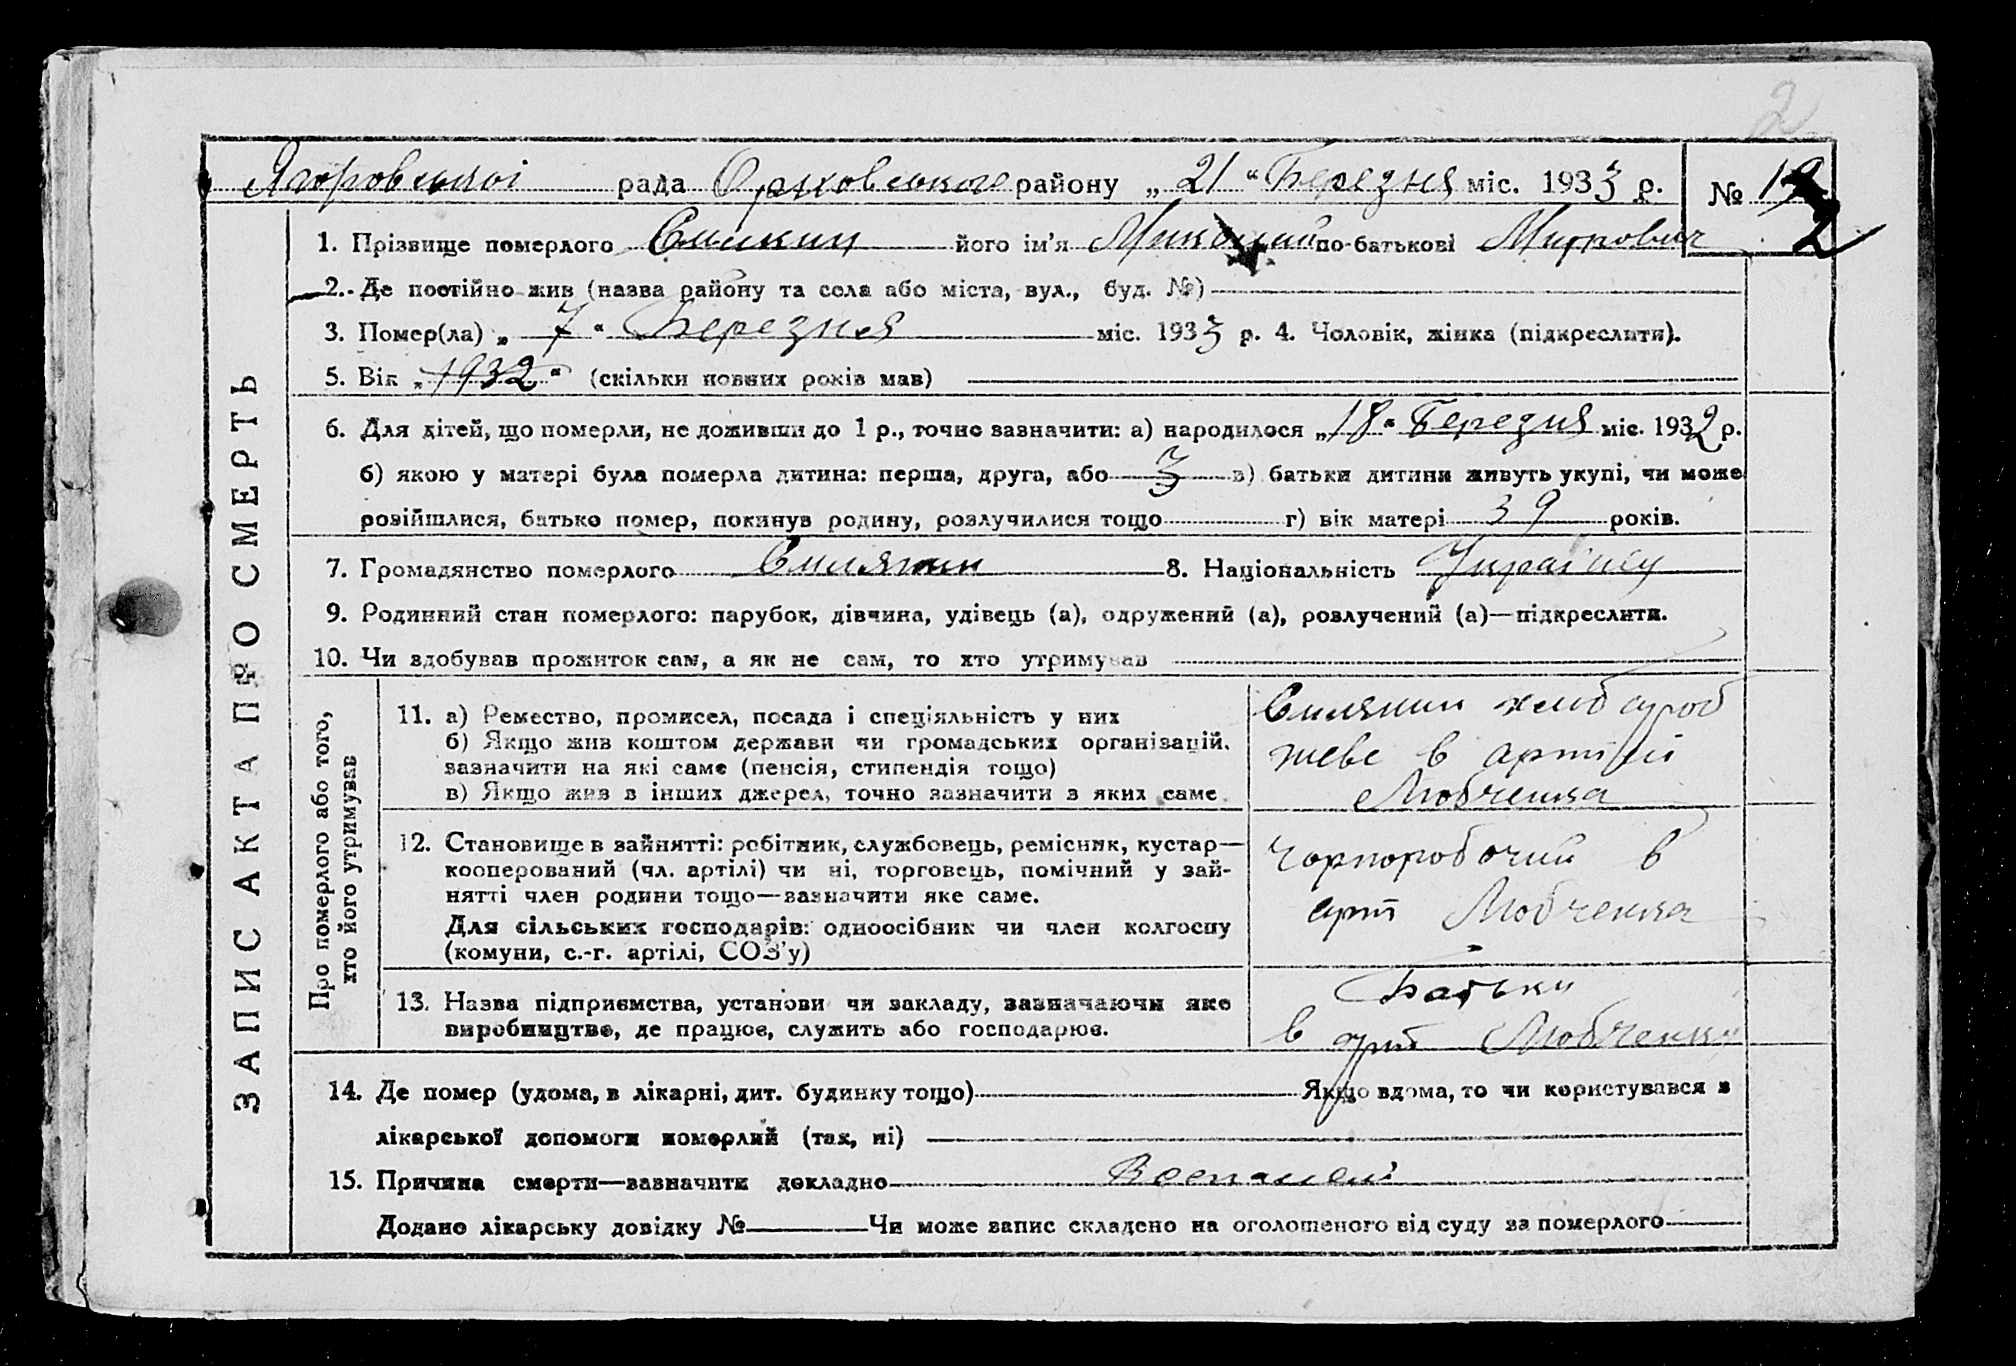 2
Ягоровської рада Оріховського району „ 21 “ Березня міс. 1933 р. №
1. Прізвище померлого його ім'я Миколай по-батькові Митрович 2
2. Де постійно жив (назва району та села або міста, вул., буд. №)
3. Помер(ла) „ 7 “ Березня міс. 1933 р. 4. Чоловік, жінка (підкреслити).
5. Вік „ 1932 “ (скільки повних років мав)
6. Для дітей, що померли, не доживши до 1 р., точно зазначити: а) народилося „ 18 “ Березня міс. 1932 р.
б) якою у матері була померла дитина: перша, друга, або 3 в) батьки дитини живуть укупі, чи може
розійшлися, батько помер, покинув родину, розлучилися тощо г) вік матері 39 років.
7. Громадянство померлого Силянин 8. Національність Украінец
9. Родинний стан померлого: парубок, дівчина, удівець (а), одружений (а), розлучений (а)—підкреслити.
10. Чи здобував прожиток сам, а як не сам, то хто утримував
ЗАПИС АКТА ПРО СМЕРТЬ
Про померлого або того,
хто його утримував
11. а) Ремество, промисел, посада і спеціяльність у них
б) Якщо жив коштом держави чи громадських організацій,
зазначити на які саме (пенсія, стипендія тощо)
в) Якщо жив з інших джерел, точно зазначити з яких саме
Силянин хлебороб
живе в артілі
Любченка
12. Становище в зайнятті: робітник, службовець, ремісник, кустар—
кооперований (чл. артілі) чи ні, торговець, помічний у зай-
нятті член родини тощо—зазначити яке саме.
Для сільських господарів: одноосібник чи член колгоспу
(комуни, с.-г. артілі, СОЗ'у)
Чорноробочий в
арт Любченка
13. Назва підприємства, установи чи закладу, зазначаючи яке
виробництво, де працює, служить або господарює.
Батьки
в арт Любченка
14. Де помер (удома, в лікарні, дит. будинку тощо) Якщо вдома, то чи користувався з
лікарської допомоги померлий (так, ні)
15. Причина смерти—зазначити докладно Воспаленй
Додано лікарську довідку № Чи може запис складено на оголошеного від суду за померлого